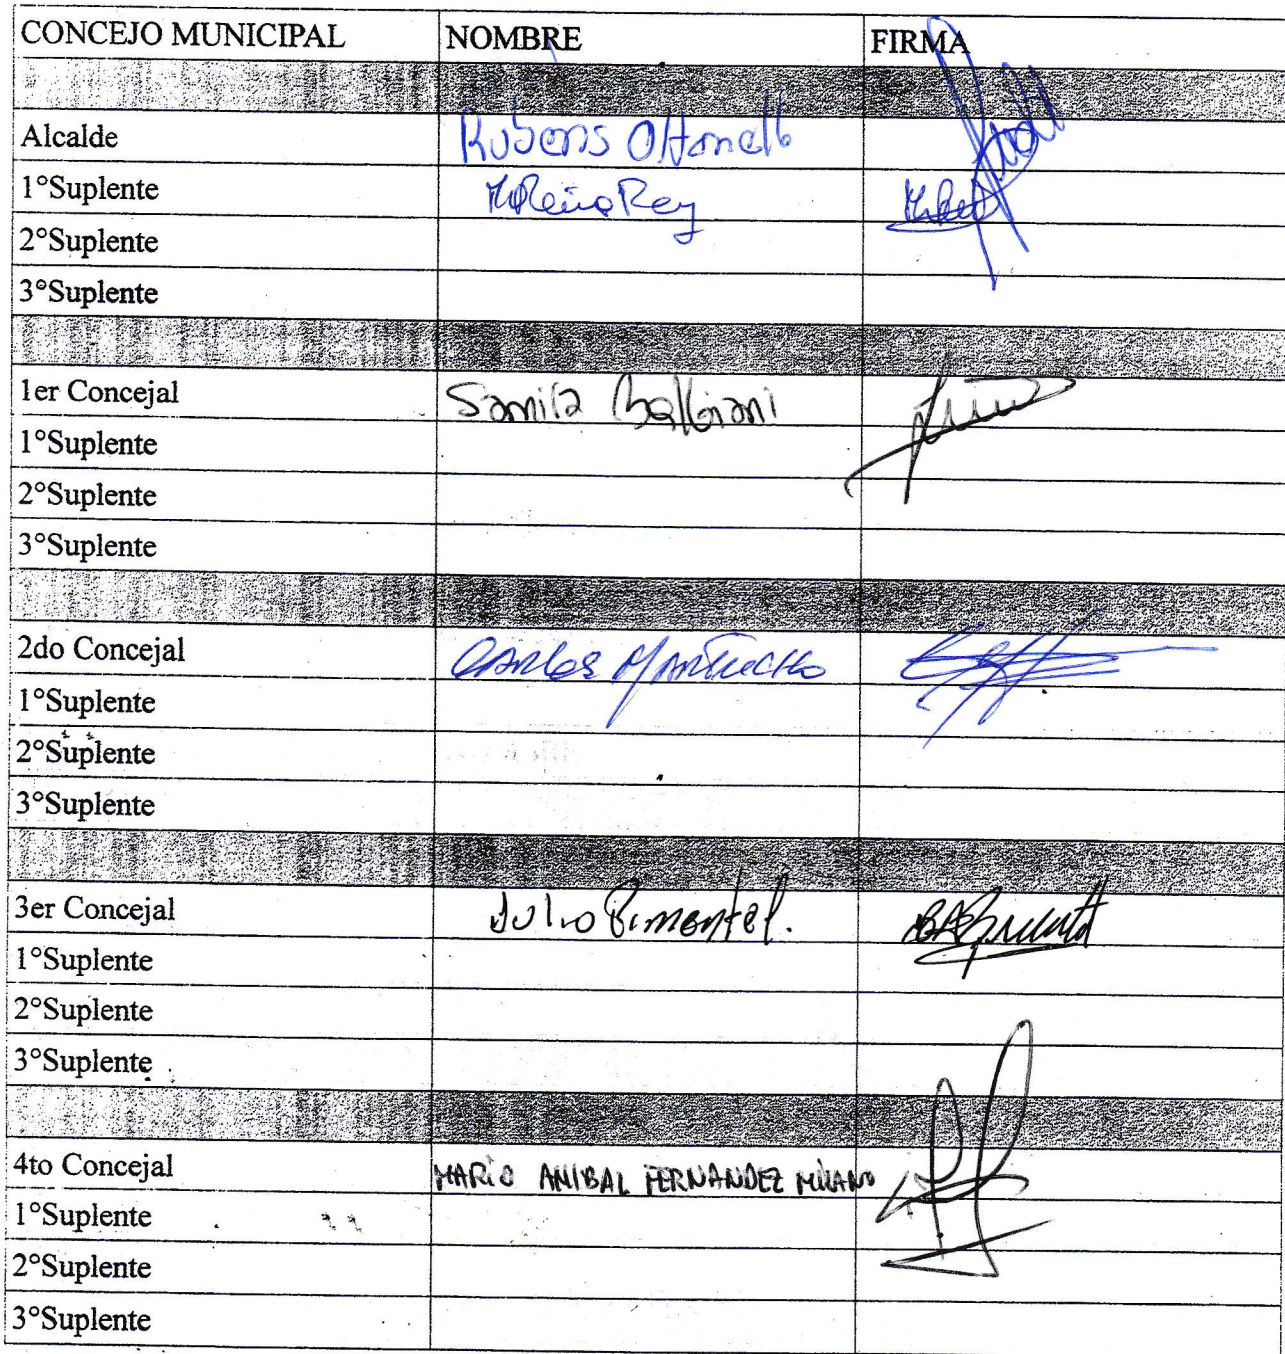 CONCEJO MUNICIPAL NOMBRE FIRMA
Alcalde Rubens Ottonello
1°Suplente Rey
2°Suplente
3°Suplente
1er Concejal Samila
1°Suplente
2°Suplente
3°Suplente
2do Concejal Carlos
1°Suplente
2°Suplente
3°Suplente
3er Concejal Julio Pimentel.
1°Suplente
2°Suplente
3°Suplente
4to Concejal MARIO ANIBAL FERNANDEZ MILANO
1°Suplente
2°Suplente
3°Suplente